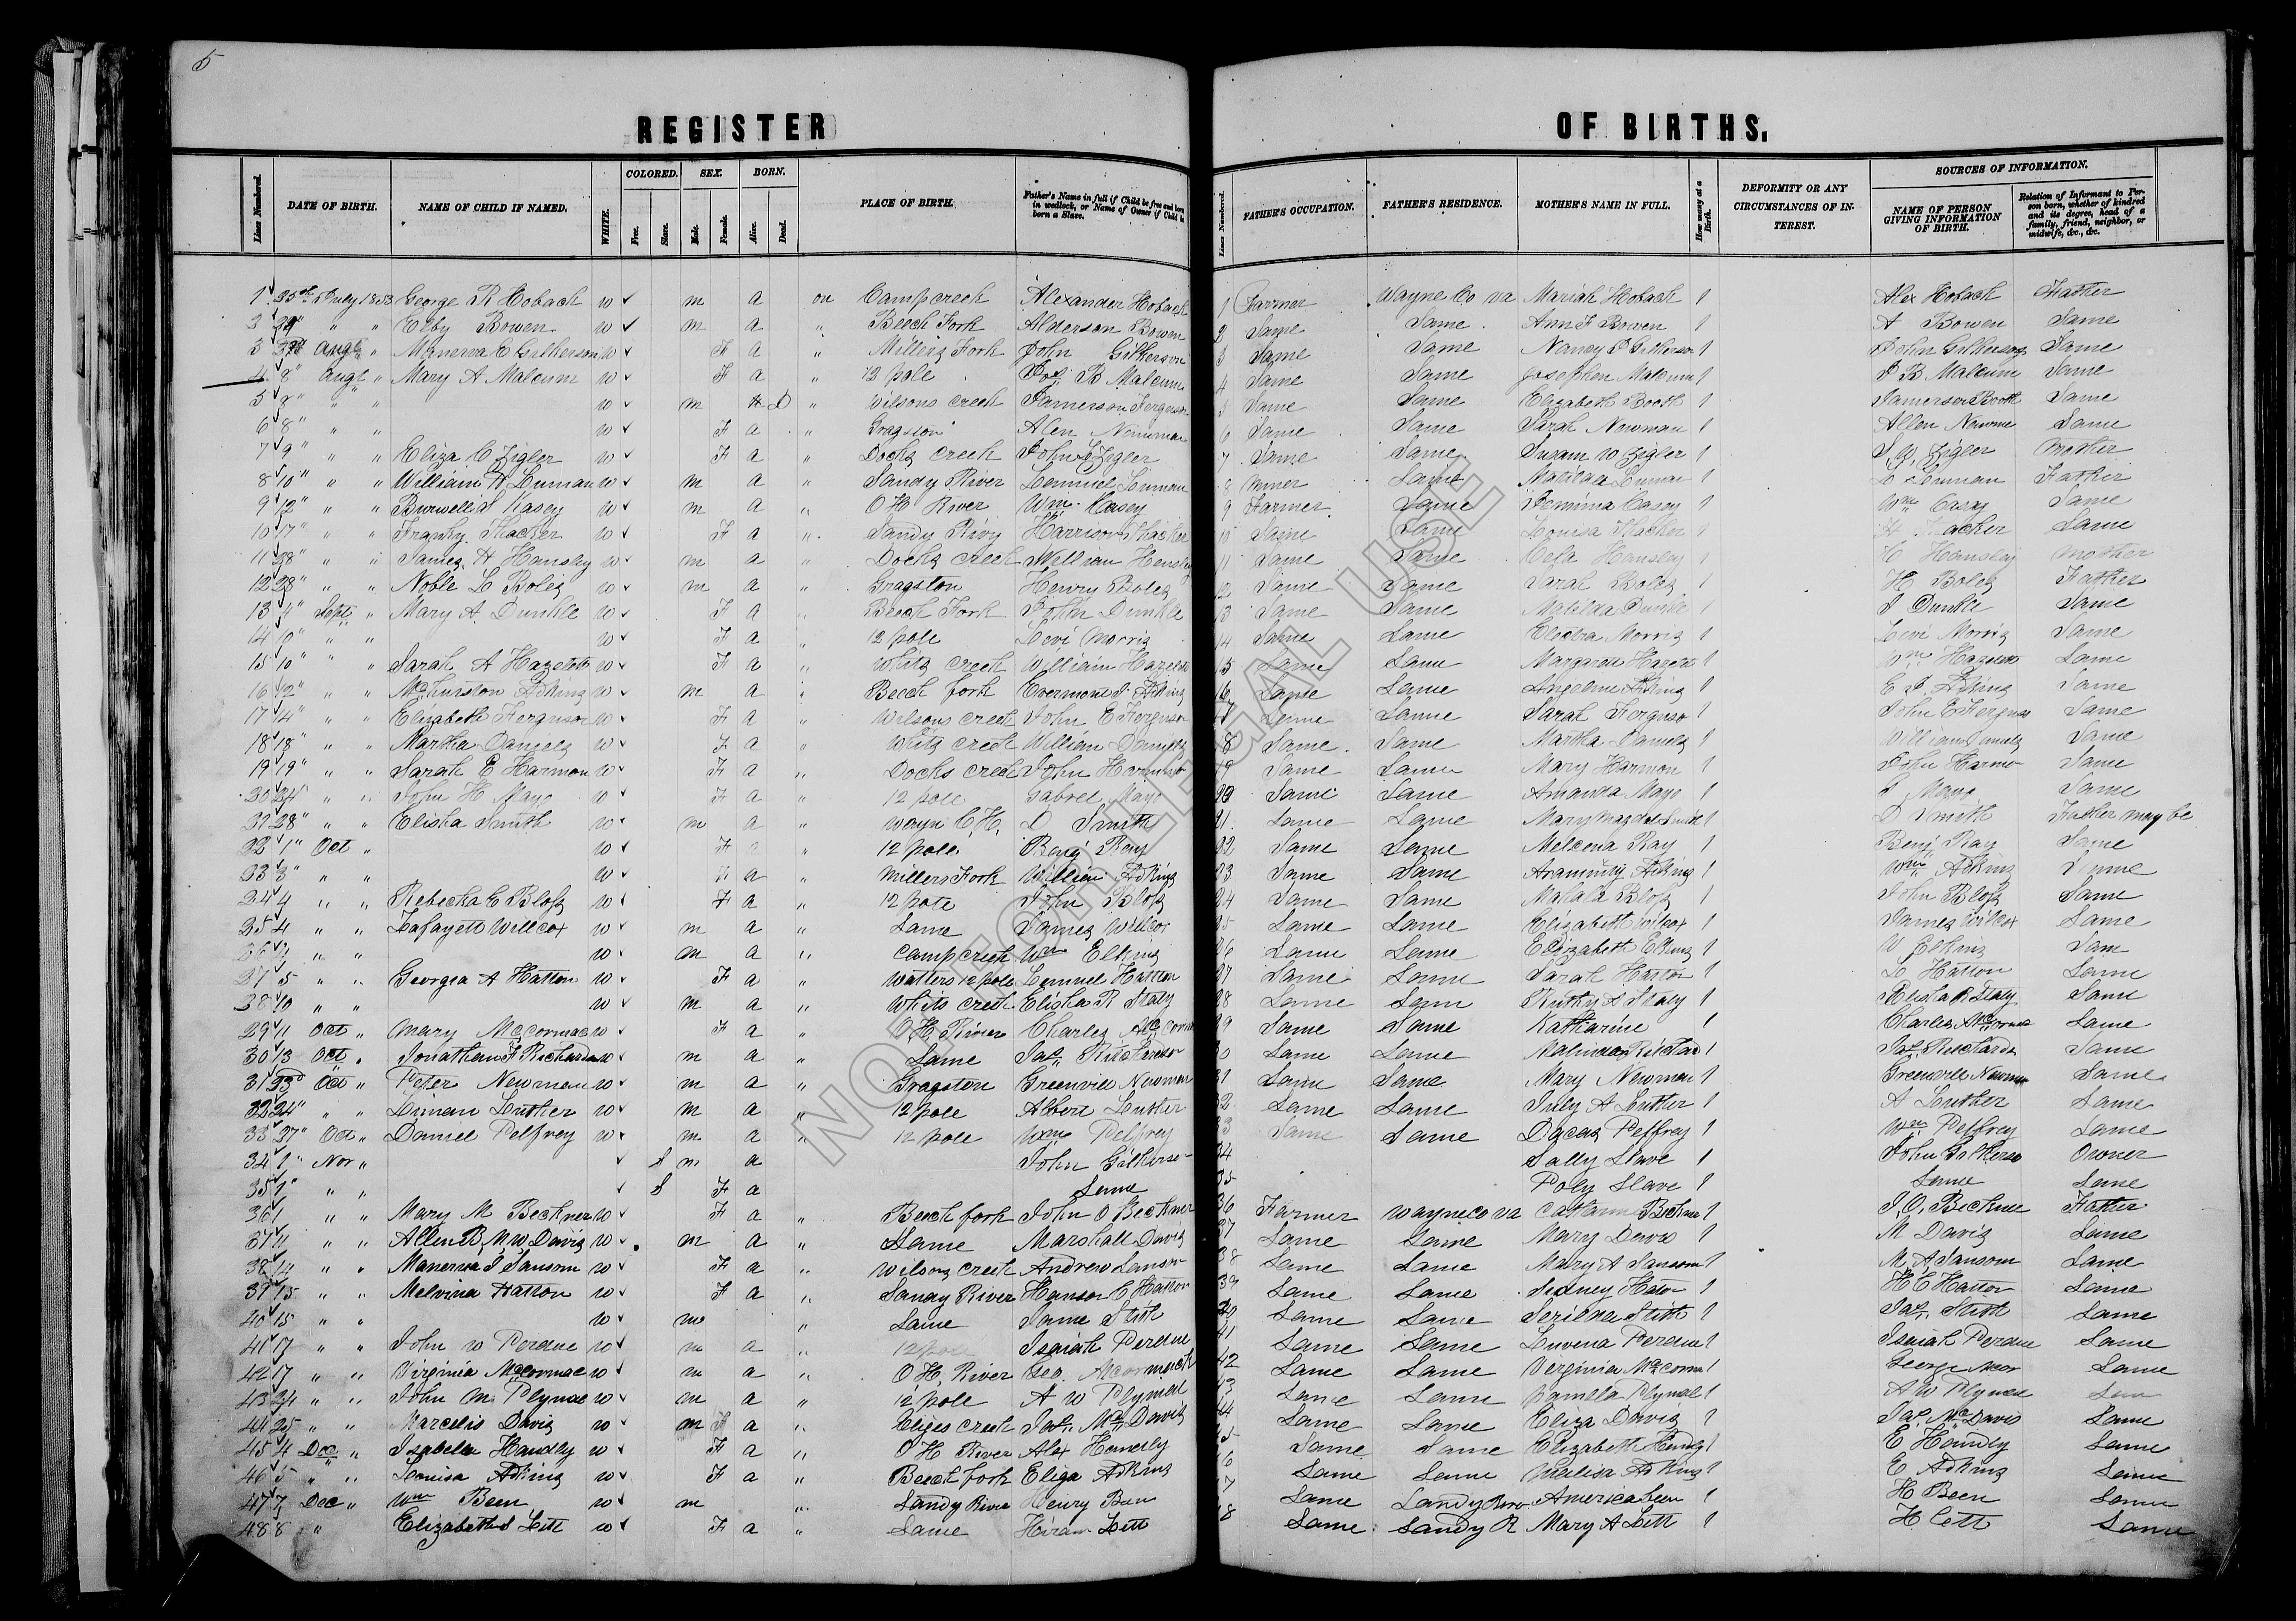 5
REGISTER OF BIRTHS.
Lines Numbered. DATE OF BIRTH. NAME OF CHILD IF NAMED. WHITE. COLORED. Free. Slave. SEX. Male. Female. BORN. Alive. Dead. PLACE OF BIRTH. Father's Name in full if Child be free and born in wedlock, or Name of Owner if Child be born a Slave. Lines Numbered. FATHER'S OCCUPATION. FATHER'S RESIDENCE. MOTHER'S NAME IN FULL. How many at a Birth. DEFORMITY OR ANY CIRCUMSTANCES OF INTEREST. SOURCES OF INFORMATION. NAME OF PERSON GIVING INFORMATION OF BIRTH. Relation of Informant to Person born, whether of kindred and its degree, head of a family, friend, neighbor, or midwife, &c., &c.
1 July 1853 George R Hobach w m a on Camp creek Alexander Hobach 1 Farmer Wayne Co va Mariah Hobach 1 Alex Hobach Father
2 " " Elby Bowen w m a " Beech Fork Alderson Bowen 2 Same Same Ann F Bowen 1 A Bowen Same
3 Augt " Manerva E Gilkerson w F a " Millers Fork John Gilkerson 3 Same Same Nancy Gilkerson 1 John Gilkerson Same
4 8" Augt " Mary A Malcum w F a " 12 pole Jos. B Malcum 4 Same Same Josephen Malcum 1 J B Malcum Same
5 " " w m D " Wilsons creek Jamerson Ferguson 5 Same Same Elizabeth Booth 1 Jamerson Booth Same
6 8" " " w F a " Gragston Alen Newman 6 Same Same Sarah Newman 1 Allen Newman Same
7 9" " " Eliza C Zigler w F a " Docks creek John Zigler 7 Same Same Susam W Zigler 1 S, W, Zigler Mother
8 10" " " William Luman w m a " Sandy River Lemuel Luman 8 Miner Same Matilda Luman 1 L Luman Father
9 12" " " Burwell S Kasey w m a " O H River Wm Kasey 9 Farmer Same Jemima Casey 1 Wm Casey Same
10 17" " " Franky Thacker w F a " Sandy Rivy Harrison Thacker Same Same Louisa Thacker 1 Same
11 28" " " James H Hensley w m a " Docks creek William Hensley 11 Same Same Hensley 1 Hensley Mother
12 28" " " Noble L Boles w m a " Gragston Henry Boles 12 Same Same Sarah Boles 1 H Boles Father
13 4" Sept " Mary A. Dunkle w F a " Beech Fork John Dunkle 13 Same Same Matilda Dunkle 1 J Dunkle Same
14 10" " " w F a " 12 pole Levi Morris 14 Same Same Electra Morris 1 Levi Morris Same
15 10" " " Sarah A Hazelett w F a " Whits creek William Hazelett 15 Same Same Margarett Hazelett 1 Wm Hazelett Same
16 12" " " Adkins w m a " Beech fork Evermont Adkins 16 Same Same Angeline Adkins 1 Adkins Same
17 14" " " Elizabeth Ferguson w F a " Wilsons creek John E Ferguson Same Same Sarah Ferguso 1 John E Ferguson Same
18 18" " " Martha Daniels w F a " Whits creek William Daniels 8 Same Same Martha Daniels 1 William Daniels Same
19 19" " " Sarah E Harmon w F a " Docks creek John Harmon Same Same Mary Harmon 1 John Harmo Same
20 24" " " John H Mayo w F a " 12 pole Gabrel Mayo Same Same Amanda Mayo 1 Mayo Same
21 28" " " Elisha Smith w m a " Wayn C H, D Smith 21 Same Same Mary Magdal Smith 1 D Smith Father may be
22 1" Oct " w F " 12 pole Benj Ray 22 Same Same Melcena Ray 1 Benj Ray Same
23 3" " " w a " Millers Fork William Adkins 23 Same Same Araminty Adkins 1 Wm Adkins Same
24 4 " " Rebecka E Bloss w F a " 12 pole John Bloss 24 Same Same Mahala Bloss 1 John Bloss Same
25 4 " " Lafayett Willcox w m a " Same James Willcox 25 Same Same Elizabeth Wilcox 1 James Wilcox Same
26 " " w m a " camp creek Wm Elkins 26 Same Same Elizabeth Elkins 1 W Elkins Sam
27 5 " " Georgea A Hatton w F a " Watters 12 pole Lemuel Hatton 27 Same Same Sarah Hatton 1 L Hatton Same
28 10 " " w m a " Whits creek Elisha R Staly 28 Same Sam Ruthy Staly 1 Elisha R Staly Same
29 11 Oct " Mary McCormac w F a " O H River Charles McCorm 29 Same Same Katharine 1 Charles McCormac Same
30 13 Oct " Jonathan F Richardson w m a " Same Jas. Richardson Same Same Malinda Richard 1 Jas. Richards Same
31 23d Oct " Peter Newman w m a " Gragston Greenvill Newman 31 Same Same Mary Newman 1 Greenville Newman Same
32 24" " " Liman Luther w m a " 12 pole Albert Luther 32 Same Same July A Luther 1 A Luther Same
33 27" Oct " Daniel Pelfrey w m a " 12 pole Wm Pelfrey 33 Same Same Dacas Peffrey 1 Wm Pelfrey Same
34 1" Nov " S m a John Gilkerson 34 Sally Slave 1 John Gilkerso Owner
35 1" " " S F a Same 35 Poly Slave 1 Same Same
36 1 " " Mary M Beckner w F a " Beech fork John O Beckner 36 Farmer Wayne co va Catharine Beckner 1 J, O, Beckner Father
37 11 " " Allen B, M W Davis w m a " Same Marshall Davis 37 Same Same Mary Davis 1 M Davis Same
38 14 " " Manerva J Sansom w F a " Wilsons creek Andrew Sansom 38 Same Same Mary A Sansom 1 M A Sansom Same
39 15 " " Melvina Hatton w F a " Sandy River Hanson C Hatton 39 Same Same Sidney Hatton 1 H C Hatton Same
40 15 " " w m " Same Jame Stith Same Same Serilda Stith 1 Jas. Stith Same
41 17 " " John W Perdue w m a " 12 pole Isaiah Perdue 41 Same Same Luvena Perdue 1 Isaiah Perdue Same
42 17 " " Virginia McCormac w m a " O H, River Geo. McCormack 42 Same Same Verginia McCorma 1 George Same
43 24 " " John M Plymae w m a " 12 pole A W Plymale Same Same Pamela Plymale 1 A W Plymale
44 25 " " Marcelis Davis w m F a " Eliges creek Jas. Mc Davis 44 Same Same Eliza Davis 1 Jas. Mc Davis Same
45 4 Dec " Isabella Handly w F a " O H River Alex Handly Same Same Elizabeth Handly 1 E Handly Same
46 5 " " Louisa Adkins w F a " Beech fork Eliga Adkins 6 Same Same Malisa Adkins 1 E Adkins Same
47 7 Dec " Wm Been w m " Sandy River Henry Been 7 Same Sandy River America Been 1 H Been Same
48 8 " Elizabeth S Lett w F a " Same Hiram Lett 8 Same Sandy R Mary A Lett 1 H Lett Same
NOT FOR LEGAL USE